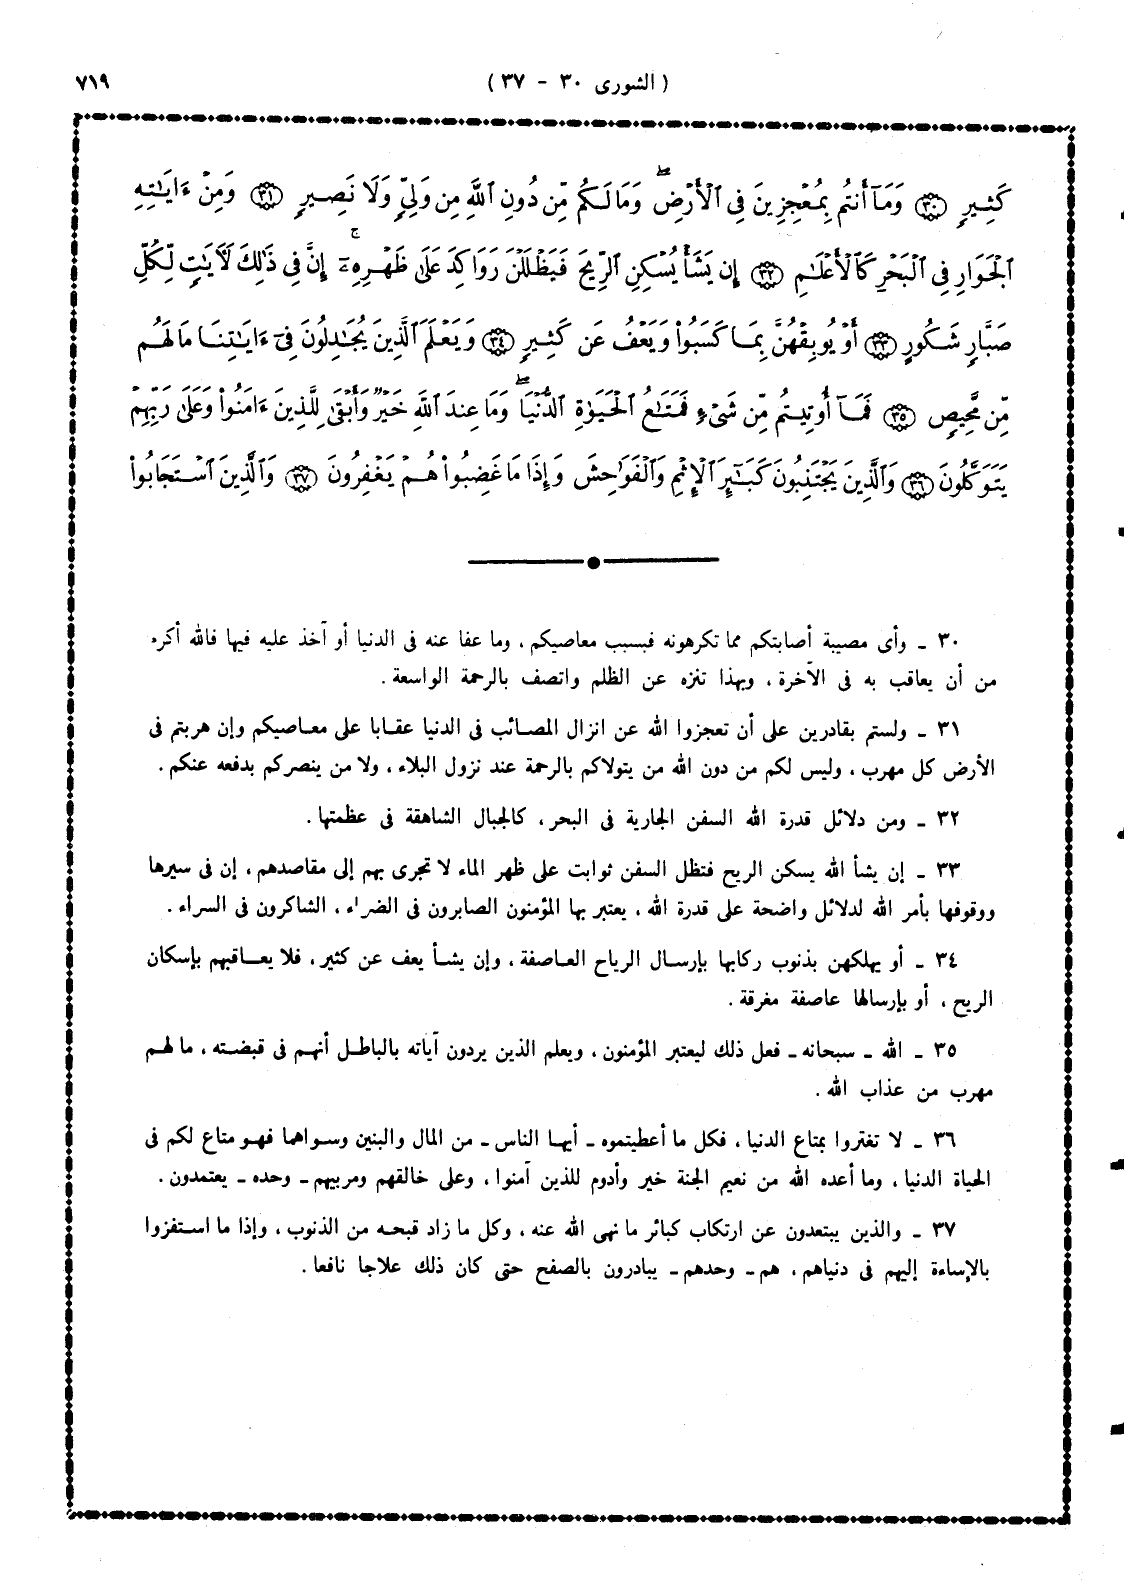 ( الشورى ٣٠ - ٣٧ ) ٧١٩
كَثِيرٍ ٣٠ وَمَآ أَنتُم بِمُعْجِزِينَ فِى ٱلْأَرْضِ ۖ وَمَا لَكُم مِّن دُونِ ٱللَّهِ مِن وَلِىٍّ وَلَا نَصِيرٍ ٣١ وَمِنْ ءَايَـٰتِهِ
ٱلْجَوَارِ فِى ٱلْبَحْرِ كَٱلْأَعْلَـٰمِ ٣٢ إِن يَشَأْ يُسْكِنِ ٱلرِّيحَ فَيَظْلَلْنَ رَوَاكِدَ عَلَىٰ ظَهْرِهِۦٓ ۚ إِنَّ فِى ذَٰلِكَ لَـَٔايَـٰتٍ لِّكُلِّ
صَبَّارٍ شَكُورٍ ٣٣ أَوْ يُوبِقْهُنَّ بِمَا كَسَبُوا۟ وَيَعْفُ عَن كَثِيرٍ ٣٤ وَيَعْلَمَ ٱلَّذِينَ يُجَـٰدِلُونَ فِىٓ ءَايَـٰتِنَا مَا لَهُم
مِّن مَّحِيصٍ ٣٥ فَمَآ أُوتِيتُم مِّن شَىْءٍ فَمَتَـٰعُ ٱلْحَيَوٰةِ ٱلدُّنْيَا ۖ وَمَا عِندَ ٱللَّهِ خَيْرٌ وَأَبْقَىٰ لِلَّذِينَ ءَامَنُوا۟ وَعَلَىٰ رَبِّهِمْ
يَتَوَكَّلُونَ ٣٦ وَٱلَّذِينَ يَجْتَنِبُونَ كَبَـٰٓئِرَ ٱلْإِثْمِ وَٱلْفَوَٰحِشَ وَإِذَا مَا غَضِبُوا۟ هُمْ يَغْفِرُونَ ٣٧ وَٱلَّذِينَ ٱسْتَجَابُوا۟
٣٠ ـ وأى مصيبة أصابتكم مما تكرهونه فبسبب معاصيكم ، وما عفا عنه فى الدنيا أو آخذ عليه فيها فالله أكره
من أن يعاقب به فى الآخرة ، وبهذا تنزه عن الظلم واتصف بالرحمة الواسعة .
٣١ ـ ولستم بقادرين على أن تعجزوا الله عن انزال المصائب فى الدنيا عقابا على معاصيكم وإن هربتم فى
الأرض كل مهرب ، وليس لكم من دون الله من يتولاكم بالرحمة عند نزول البلاء ، ولا من ينصركم بدفعه عنكم .
٣٢ ـ ومن دلائل قدرة الله السفن الجارية فى البحر ، كالجبال الشاهقة فى عظمتها .
٣٣ ـ إن يشأ الله يسكن الريح فتظل السفن ثوابت على ظهر الماء لا تجرى بهم إلى مقاصدهم ، إن فى سيرها
ووقوفها بأمر الله لدلائل واضحة على قدرة الله ، يعتبر بها المؤمنون الصابرون فى الضراء ، الشاكرون فى السراء .
٣٤ ـ أو يهلكهن بذنوب ركابها بإرسال الرياح العاصفة ، وإن يشأ يعف عن كثير ، فلا يعاقبهم بإسكان
الريح ، أو بإرسالها عاصفة مغرقة .
٣٥ ـ الله ـ سبحانه ـ فعل ذلك ليعتبر المؤمنون ، ويعلم الذين يردون آياته بالباطل أنهم فى قبضته ، ما لهم
مهرب من عذاب الله .
٣٦ ـ لا تغتروا بمتاع الدنيا ، فكل ما أعطيتموه ـ أيها الناس ـ من المال والبنين وسواهما فهو متاع لكم فى
الحياة الدنيا ، وما أعده الله من نعيم الجنة خير وأدوم للذين آمنوا ، وعلى خالقهم ومربيهم ـ وحده ـ يعتمدون .
٣٧ ـ والذين يبتعدون عن ارتكاب كبائر ما نهى الله عنه ، وكل ما زاد قبحه من الذنوب ، وإذا ما استفزوا
بالإساءة إليهم فى دنياهم ، هم ـ وحدهم ـ يبادرون بالصفح حتى كان ذلك علاجا نافعا .